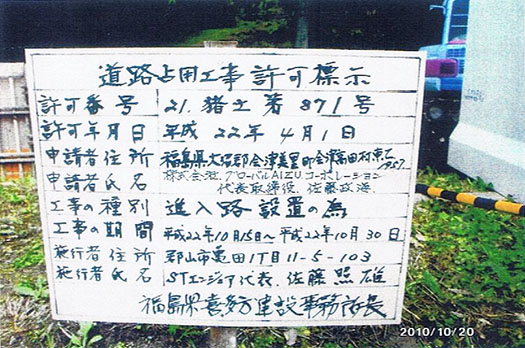 道路占用工事許可標示
許可番号 21.猪土第871号
許可年月日 平成 22年 4月1日
申請者住所 福島県大沼郡会津美里町会津高田村東乙
申請者氏名 株式会社、グローバルAIZUコーポレーション
代表取締役、佐藤政
工事の種別 進入路設置の為
工事の期間 平成22年10月15日～平成22年10月30日
施行者住所 郡山市亀田1丁目11-5-103
施行者氏名 STエンジョア代表、佐藤照雄
福島県喜多方建設事務所長
2010/10/20